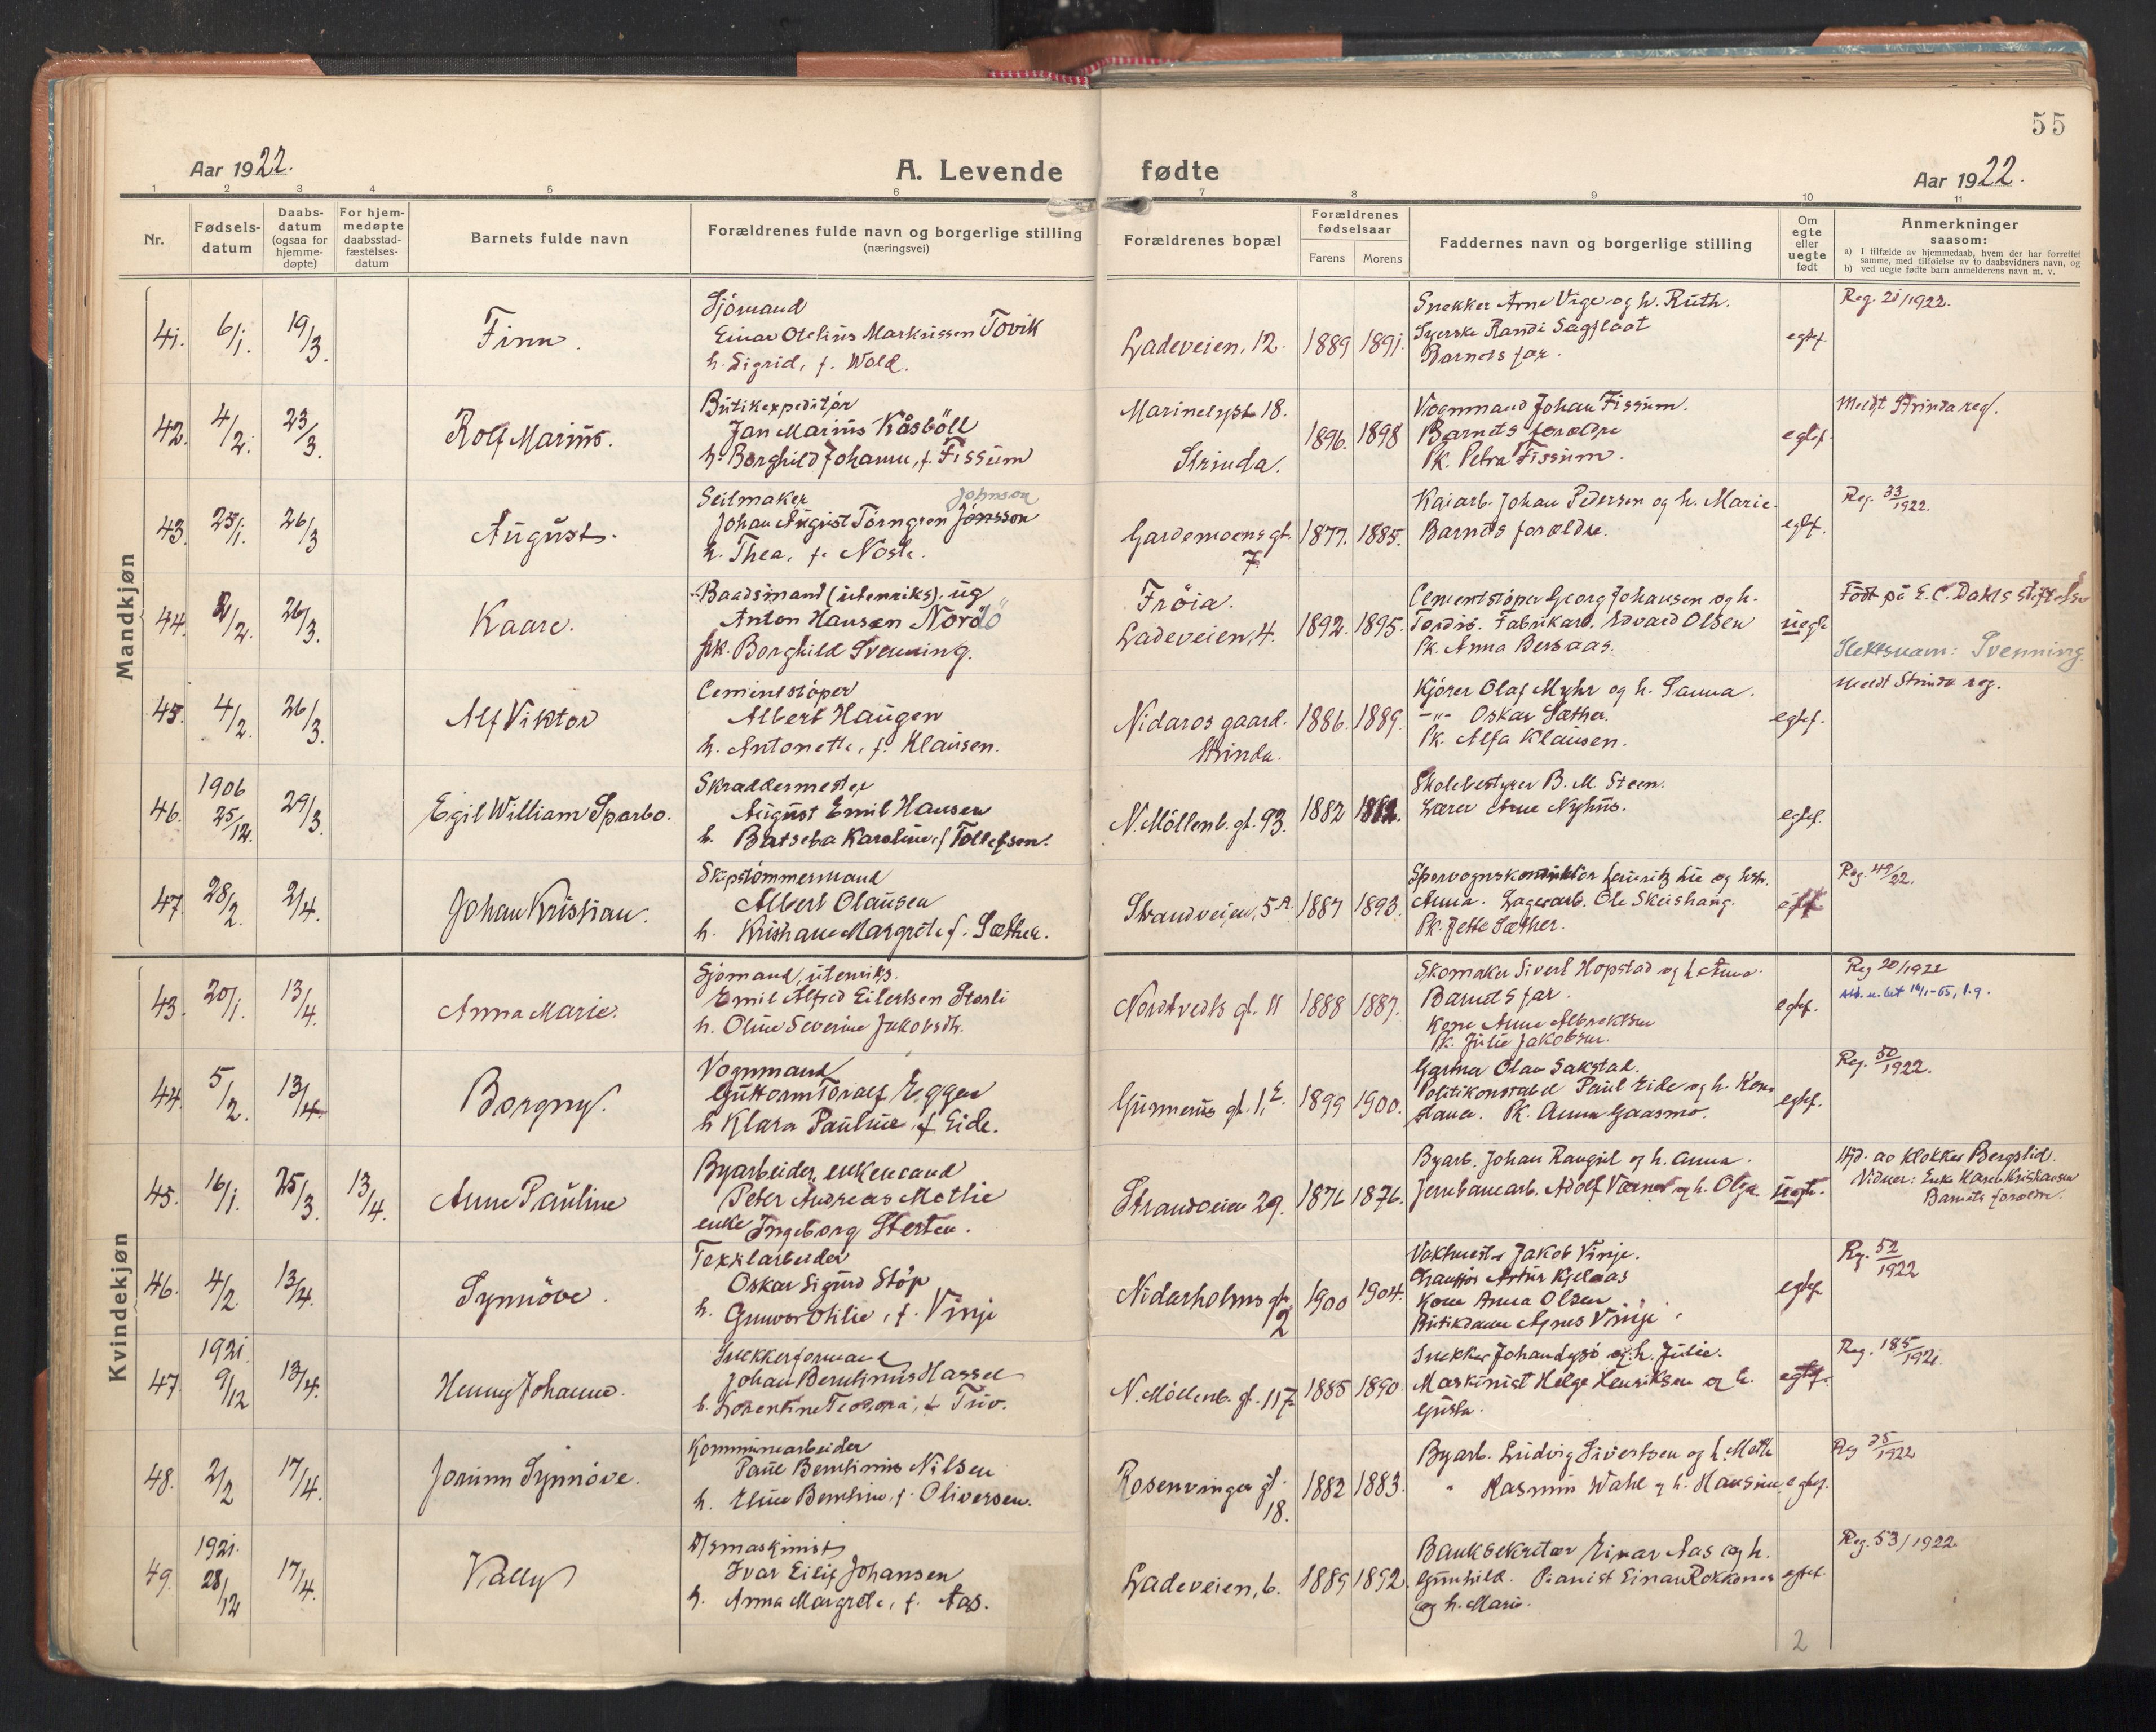 55
Aar 1922.
A. Levende fødte
Aar 1922.
1 2 3 4 5 6 7 8 9 10 11
Nr.
Fødsels-
datum
Daabs-
datum
(ogsaa for
hjemme-
døpte)
For hjem-
medøpte
daabsstad-
fæstelses-
datum
Barnets fulde navn
Forældrenes fulde navn og borgerlige stilling
(næringsvei)
Forældrenes bopæl
Forældrenes
fødselsaar
Farens Morens
Faddernes navn og borgerlige stilling
Om
egte
eller
uegte
født
Anmerkninger
saasom:
a) I tilfælde av hjemmedaab, hvem der har forrettet
samme, med tilføielse av to daabsvidners navn, og
b) ved uegte fødte barn anmelderens navn m. v.
Mandkjøn
41. 6/1. 19/3. Finn.
Sjömand
Einar Otelius Markussen Tovik
h. Sigrid, f. Wold.
Ladeveien, 12. 1889 1891.
Snekker Arne Vige og h. Ruth.
Syerske Randi Sagfloot
Barnets far.
egtef.
Reg. 21/1922.
42. 4/2. 23/3. Rolf Marius.
Butikexpeditör
Jan Marius Kåsböll
h. Borghild Johanne, f. Fissum
Marinelyst 18.
Strinda.
1896. 1898
Vognmand Johan Fissum.
Barnets forældre
Pk. Petra Fissum.
egtef.
Meldt Strinda reg.
43. 25/1. 26/3 August.
Seilmaker
Johnson
Johan August Törngren Jönsson
h. Thea, f. Nosle.
Gardemoens gt.
7.
1877. 1885.
Kaiarb. Johan Pedersen og h. Marie.
Barnets forældre.
egtf.
Reg. 33/1922.
44. 2/2. 26/3. Kaare.
Baadsmand (utenriks). ug
Anton Hansen Nordö
pk. Borghild Svenning.
Fröia.
Ladeveien, 4.
1892. 1895.
Cementstöper Georg Johansen og h.
Tordis. Fabrikarb. Edvard Olsen
Pk. Anna Bersaas.
uegte
Födt på E. C. Dahls stiftelse
Slektsnavn: Svenning.
45. 4/2. 26/3. Alf Viktor
Cementstöper
Albert Haugen
h. Antonette, f. Klausen.
Nidaros gaard.
Strinda.
1886. 1889.
Kjörer Olaf Myhr og h. Sanna.
-"- Oskar Sæther.
Pk. Alfa Klausen.
egtef.
Meldt Strinda reg.
46. 1906
25/12. 29/3. Egil William Sparbo.
Skraddermester
August Emil Hansen
h. Batseba Karoline, f Tollefsen.
N. Möllenb. gt. 93. 1882
Skolebestyrer B. M. Steen.
Lærer Arne Nyhus.
egtef.
47. 28/2. 2/4. Johan Kristian.
Skipstömmermand
Albert Olausen
h. Kristiane Margrete f. Sæther.
Strandveien, 5A. 1887 1893.
Sporvognskonduktör Lauritz Lie og hstr.
Anna. Lagerarb. Ole Skeishaug.
Pk. Jette Sæther.
Reg. 49/22.
Kvindekjøn
43. 20/1. 13/4. Anna Marie.
Sjömand, utenriks.
Emil Alfred Eilertsen Storli
h. Oline Severine Jakobsdt.
Nordtvedts gt. 11 1888 1887.
Skomaker Sivert Hopstad og h Anna.
Barnets far.
Kone Anne Albrektsen
Pk. Julie Jakobsen.
egtef.
Reg 20/1922
44. 5/2. 13/4. Borgny.
Vognmand
Guttorm Toralf Eggen
h Klara Pauline, f Eide.
Gunnerus gt. 1. E. 1899 1900.
Gartner Olav Sakstad.
Politikonstabel Paul Eide og h. Kon-
stance. Pk. Anna Gaasmo.
egtef.
Reg. 50/1922.
45. 16/1. 25/3. 13/4. Anne Pauline
Byarbeider, enkemand
Peter Andreas Mothie
enke Ingeborg Sterten.
Strandveien 29. 1871 1876.
Byarb. Johan Rangul og h. Anna.
Jernbanearb. Adolf Værnes og h. Olga.
uegte.
Hjd. av klokker Bergslid.
Vidner: Enke Karen Kristiansen
Barnets forældre.
46. 4/2. 13/4. Synnöve.
Textilarbeider
Oskar Sigurd Stöp
h. Gunvor Otilie, f. Vinje
Nidarholms gt.
12
1900 1904.
Vaktmester Jakob Vinje.
Chauffør Artur Kjelaas
Kone Anna Olsen
Butikdame Agnes Vinje.
egtef
Reg. 52/1922
47. 1921.
9/12 13/4. Henny Johanne.
Snekkerformand
Johan Bernhinus Hassel
h. Lorentine Teodora, f. Triv.
N. Möllenb. gt. 117. 1885 1890
Snekker Johan Lysö og h. Julie.
Maskinist Helge Henriksen og h.
Gusta.
egtef.
Reg. 185/1921.
48. 2/2 17/4. Jorunn Synnöve.
Kommunearbeider
Paul Bernhinus Nilsen
h. Eline Bernhine, f. Oliversen.
Rosenvinges gt.
18.
1882 1883.
Byarb. Ludvig Sivertsen og h. Meth
" Rasmus Wahl og h. Hansine
egtef.
Reg 35/1922
49. 1921.
28/12 17/4. Vally
D/Smaskinist
Ivar Eilif Johansen
h. Anna Margrete, f. Aas.
Ladeveien, 6. 1889 1892.
Banksekretær Einar Aas og h.
Gunhild. Pianist Einar Rokkones
og h. Marie.
egtef.
Reg. 53/1922.
2